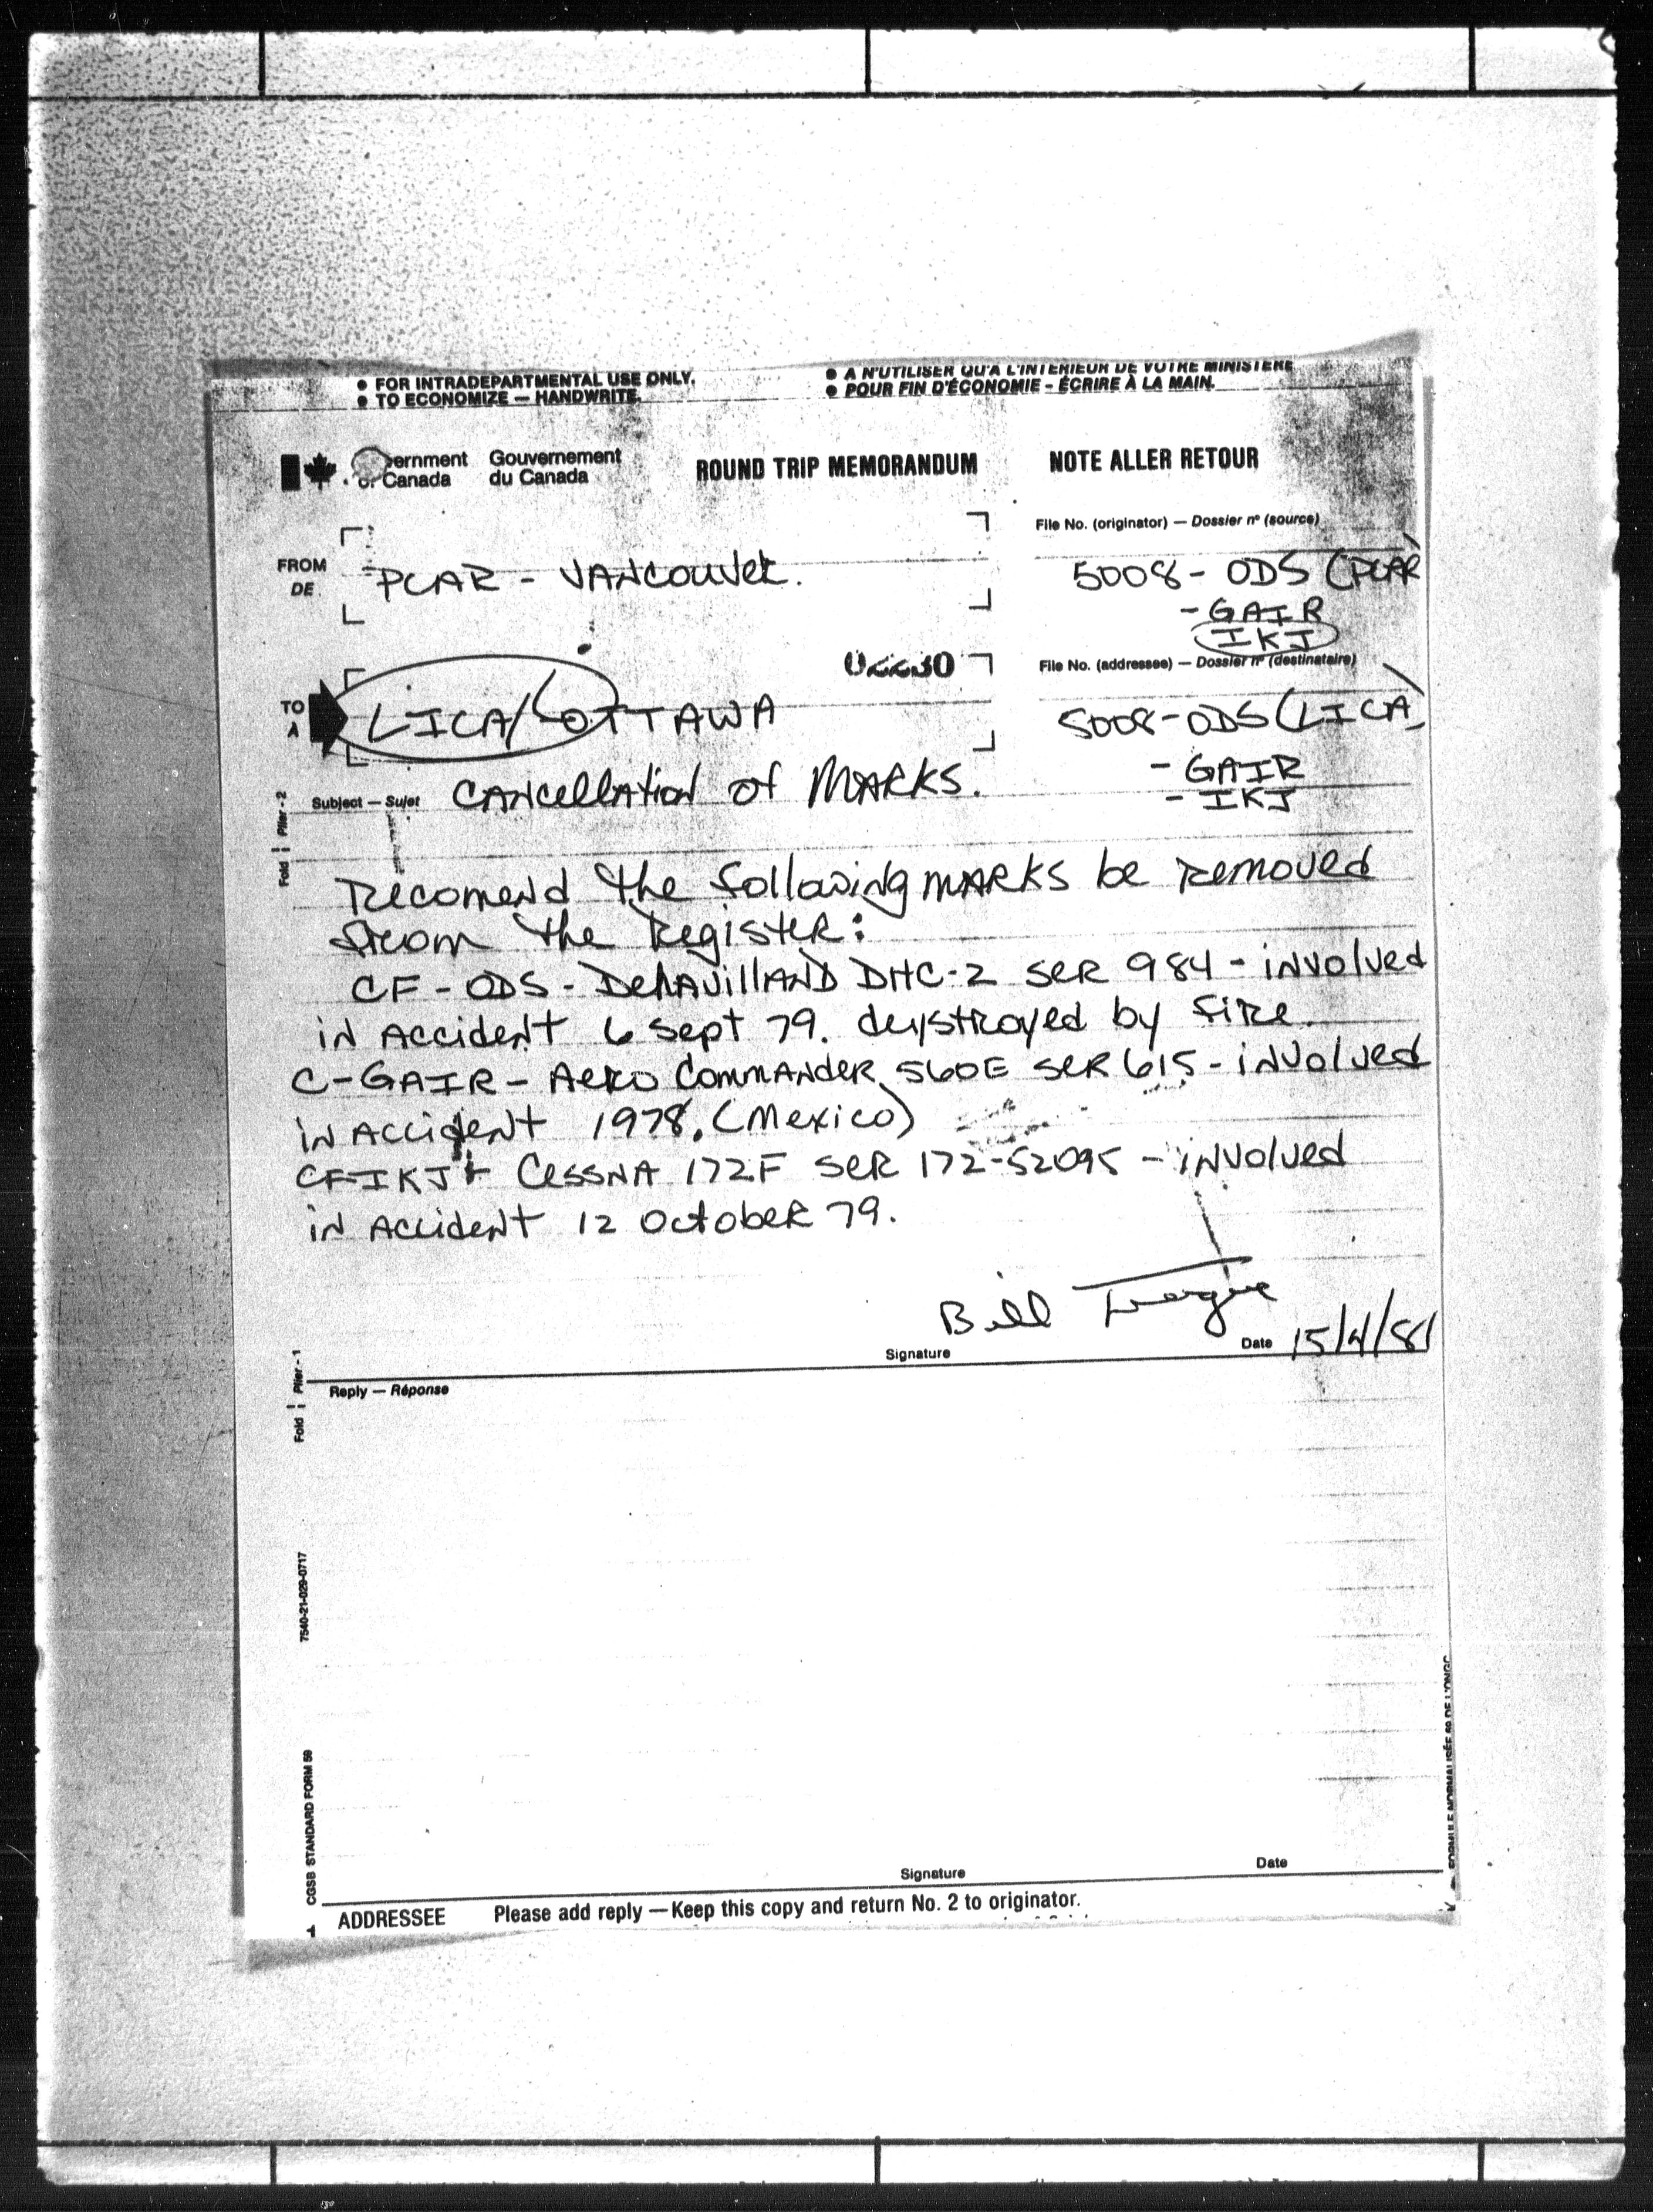 ● FOR INTRADEPARTMENTAL USE ONLY.
● TO ECONOMIZE — HANDWRITE.
● A N'UTILISER QU'A L'INTÉRIEUR DE VOTRE MINISTÈRE
● POUR FIN D'ÉCONOMIE - ÉCRIRE À LA MAIN.
ernment Gouvernement
of Canada du Canada
ROUND TRIP MEMORANDUM
NOTE ALLER RETOUR
File No. (originator) — Dossier nº (source)
FROM
DE
PCAR - VANCOUVER.
5008- ODS (PCAR)
- GAIR
IKJ
File No. (addressee) — Dossier nº (destinataire)
TO
A
LICA/OTTAWA
5008-ODS (LICA)
- GAIR
- IKJ
Subject — Sujet CANCELLATION OF MARKS.
Fold Plier - 2
Recomend the following MARKS be removed
from the Register:
CF-ODS- DeHAVILLAND DHC-2 SER 984 - involved
in Accident 6 Sept 79. deystroyed by fire.
C-GAIR- Aero Commander 560E SER 615 - involved
in Accident 1978. (Mexico)
CFIKJ Cessna 172F SER 172-52095 - involved
in Accident 12 October 79.
Bill
Signature
Date 15/4/81
Fold Plier - 1
Reply — Réponse
7540-21-029-0717
CGSB STANDARD FORM 59
FORMULE NORMALISÉE 59 DE L'ONGC
Signature
Date
1 ADDRESSEE Please add reply — Keep this copy and return No. 2 to originator.